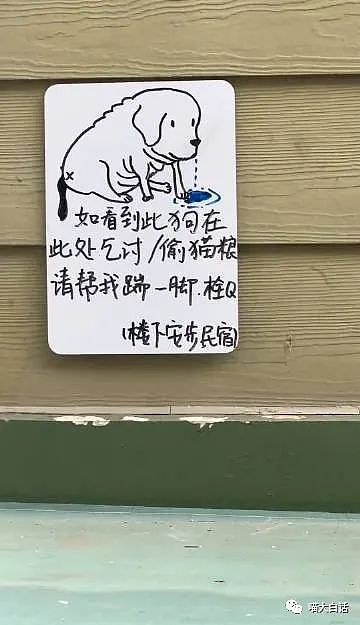 如看到此狗在
此处乞讨/偷猫粮
请帮我踹一脚.栓Q
(楼下安步民宿)
喵大白话